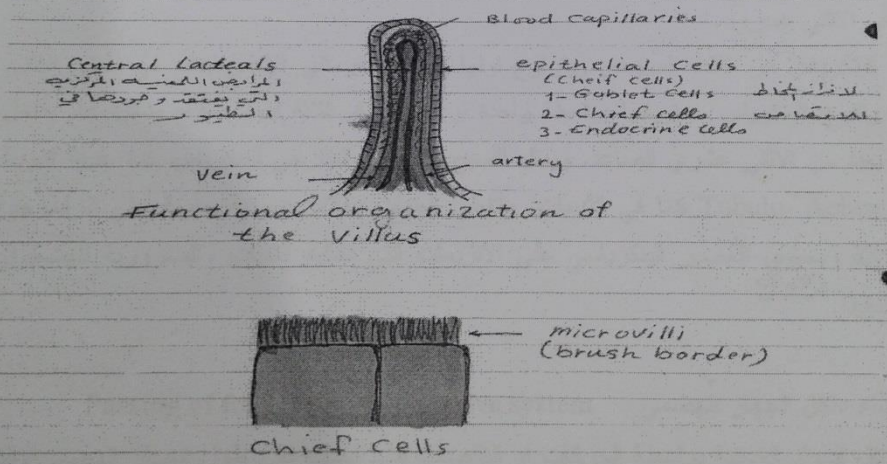 Blood Capillaries
Central Lacteals
المراكز اللبنية المركزية
التي يفتقد وجودها في
الطيور
epithelial cells
(Cheif cells)
1- Goblet cells لافراز المخاط
2- Chief cells للامتصاص
3- Endocrine cells
vein
artery
Functional organization of
the villus
microvilli
(brush border)
Chief Cells